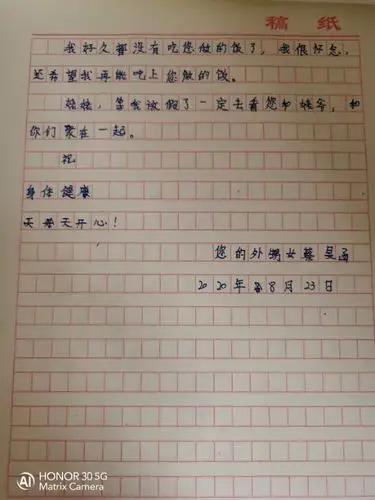 稿 纸
我好久都没有吃您做的饭了，我很怀念，
还希望我再能吃上您做的饭。
姥姥，等我放假了一定去看您和姥爷，和
你们聚在一起。
祝
身体健康
天天开心！
您的外甥女蔡昊函
2020年8月23日
HONOR 30 5G
Matrix Camera